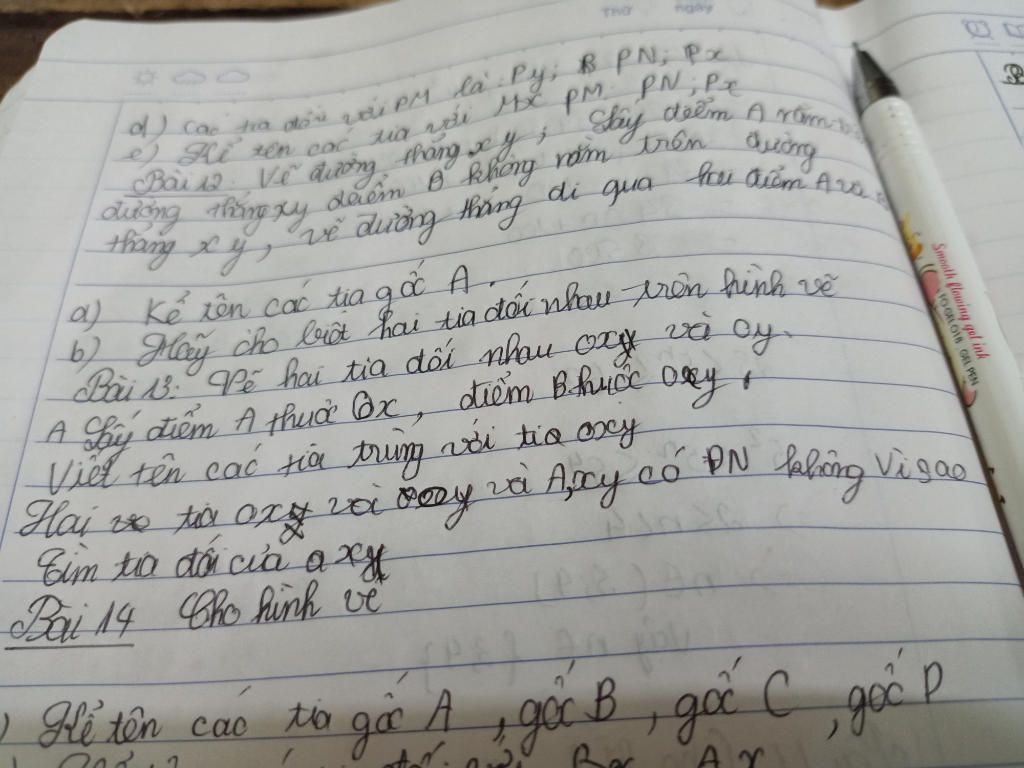 Thứ ngày
d) Các tia đối với PM là: Py; PN; Px
e) Kể tên các tia với Mx PM PN; Px
Bài 12: Vẽ đường thẳng xy, Lấy điểm A nằm
đường thẳng xy điểm B không nằm trên đường
thẳng xy, vẽ đường thẳng đi qua hai điểm A và
a) Kể tên các tia gốc A.
b) Hãy cho biết hai tia đối nhau trên hình vẽ
Bài 13: Vẽ hai tia đối nhau Ox và Oy.
A Lấy điểm A thuộc Ox, điểm B thuộc Oy.
Viết tên các tia trùng với tia Oxy
Hai tia Ox và và A, xy có ĐN không Vì sao
Tìm tia đối của a x
Bài 14 Cho hình vẽ
) Kể tên các tia gốc A, gốc B, gốc C, gốc D
Bx Ax
Smooth flowing gel ink
TO-GEL018 GEL PEN